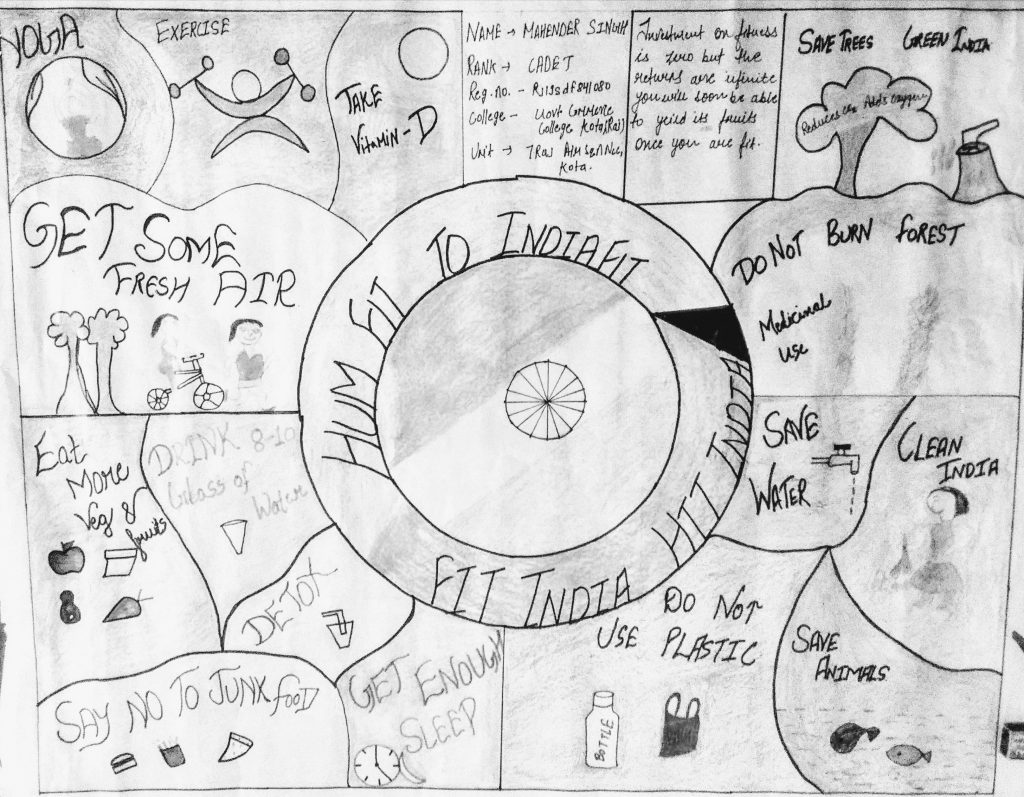 YOGA
EXERCISE
TAKE
VITAMIN-D
NAME → MAHENDER SINGH
RANK → CADET
Reg. no. -
College - Govt Commerce
College Kota(Raj)
Unit →
Kota.
Investment on fitness
is zero but the
returns are infinite
you will soon be able
to yeild its fruits
once you are fit.
SAVE TREES GREEN INDIA
Reduces Co₂ Adds Oxygen
GET SOME
FRESH AIR
HUM FIT TO INDIA FIT
DO NOT BURN FOREST
Medicinal
Use
Eat
More
Veg &
fruits
DRINK 8-10
Glass of
Water
DETOX
HIT INDIA
FIT INDIA
SAVE
WATER
CLEAN
INDIA
SAY NO TO JUNK FOOD
GET ENOUGH
SLEEP
DO NOT
USE PLASTIC
BOTTLE
SAVE
ANIMALS